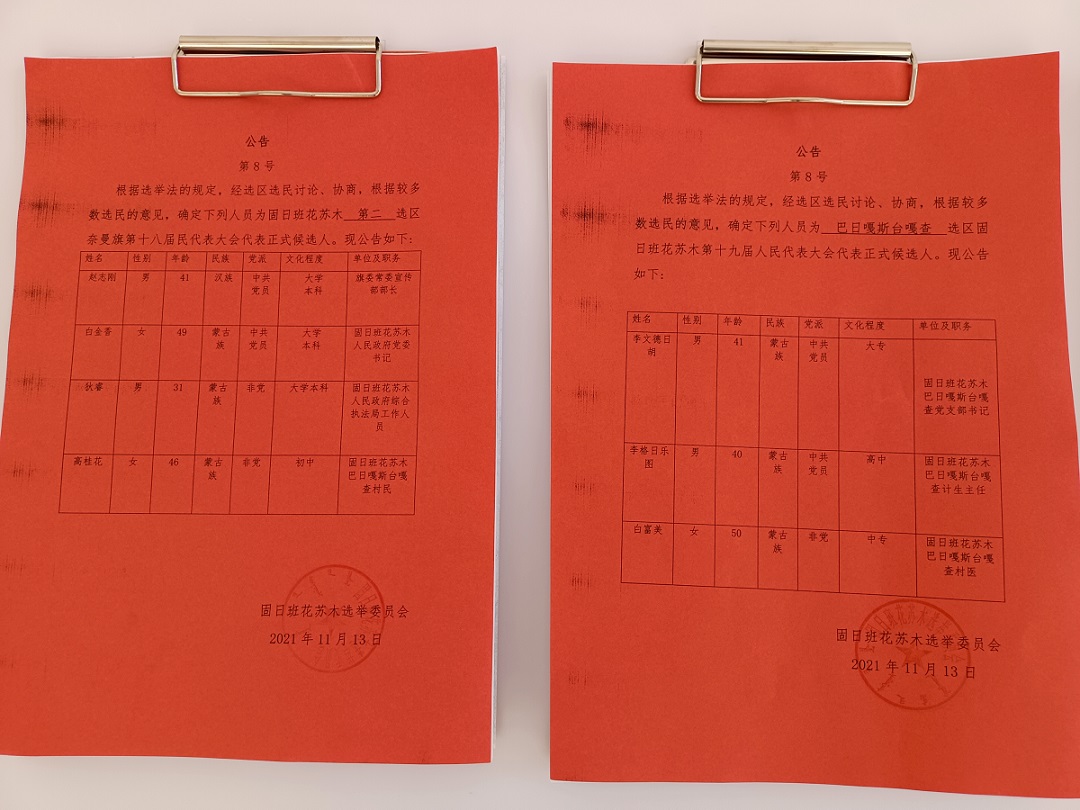 公告
第 8 号
根据选举法的规定，经选区选民讨论、协商，根据较多
数选民的意见，确定下列人员为固日班花苏木 第二 选区
奈曼旗第十八届民代表大会代表正式候选人。现公告如下：
姓名 性别 年龄 民族 党派 文化程度 单位及职务
赵志刚 男 41 汉族 中共 大学 旗委常委宣传
党员 本科 部部长
白金香 女 49 蒙古 中共 大学 固日班花苏木
族 党员 本科 人民政府党委
书记
狄睿 男 31 蒙古 非党 大学本科 固日班花苏木
族 人民政府综合
执法局工作人
员
高桂花 女 46 蒙古 非党 初中 固日班花苏木
族 巴日嘎斯台嘎
查村民
固日班花苏木选举委员会
2021 年 11 月 13 日
公告
第 8 号
根据选举法的规定，经选区选民讨论、协商，根据较多
数选民的意见，确定下列人员为 巴日嘎斯台嘎查 选区固
日班花苏木第十九届人民代表大会代表正式候选人。现公告
如下：
姓名 性别 年龄 民族 党派 文化程度 单位及职务
李文德日 男 41 蒙古 中共 大专
胡 族 党员
固日班花苏木
巴日嘎斯台嘎
查党支部书记
李格日乐 男 40 蒙古 中共 高中 固日班花苏木
图 族 党员 巴日嘎斯台嘎
查计生主任
白富美 女 50 蒙古 非党 中专 固日班花苏木
族 巴日嘎斯台嘎
查村医
固日班花苏木选举委员会
2021 年 11 月 13 日